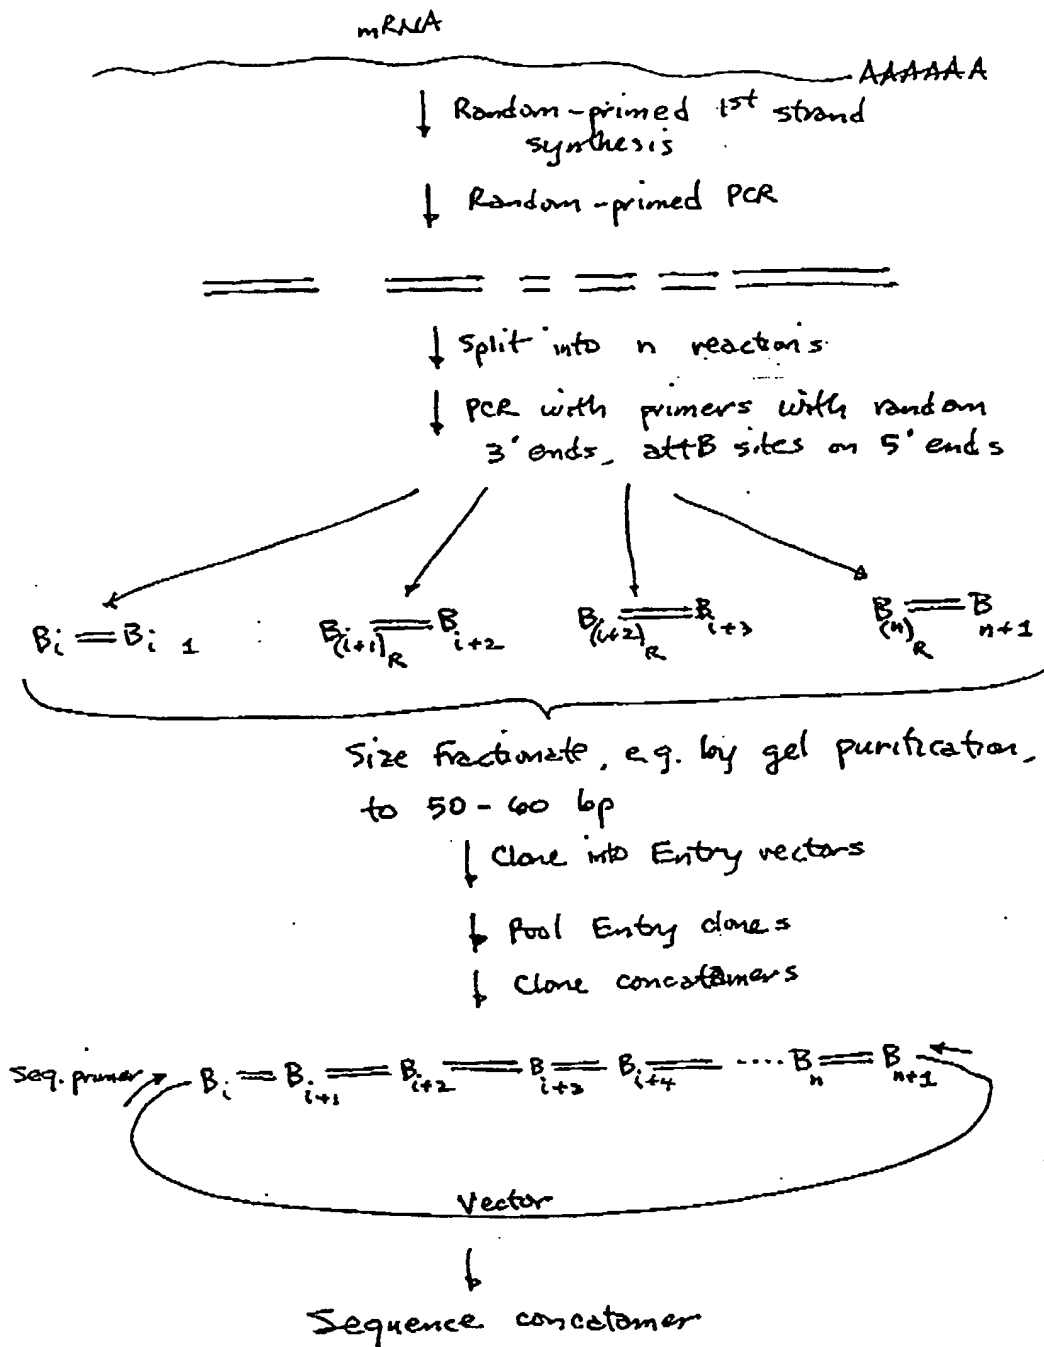 mRNA
AAAAAA
Random-primed 1st strand
synthesis
Random-primed PCR
Split into n reactions
PCR with primers with random
3' ends, attB sites on 5' ends
Bi = Bi 1
B(i+1)R = Bi+2
B(i+2)R = Bi+3
B(n)R = Bn+1
Size fractionate, e.g. by gel purification,
to 50-60 bp
Clone into Entry vectors
Pool Entry clones
Clone concatamers
Seq. primer Bi = Bi+1 = Bi+2 = Bi+3 = Bi+4 = .... Bn = Bn+1
Vector
Sequence concatomer